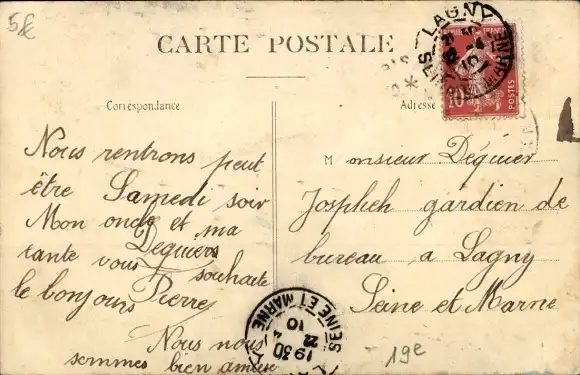 5€
CARTE POSTALE
Correspondance
Adresse
LAGNY
SEINE
MARNE
10
POSTES
Nous rentrons peut
être Samedi soir
Mon oncle et ma
tante vous souhaite
le bonjours Pierre
Deguiers
Nous nous
sommes bien amuse
Monsieur Déguier
Jospheh gardien de
bureau a Lagny
Seine et Marne
SEINE ET MARNE
19 30
22
4
10
19e